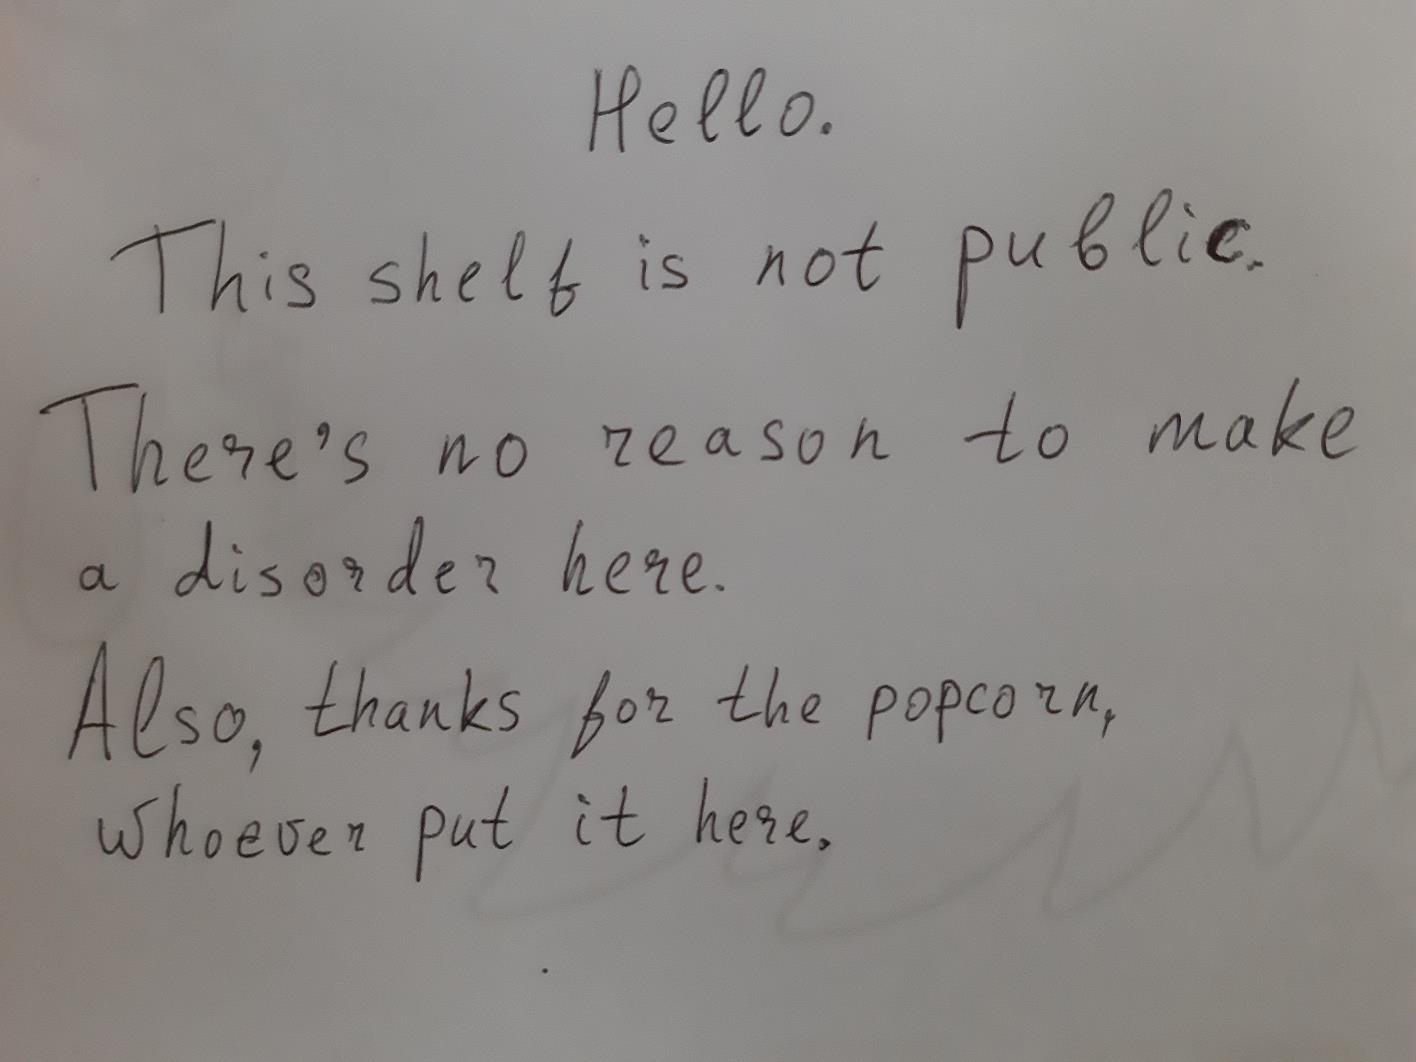 Hello.
This shelf is not public.
There's no reason to make
a disorder here.
Also, thanks for the popcorn,
whoever put it here.